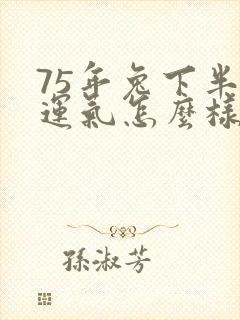 75年兔下半
運氣怎麼樣
孫淑芳